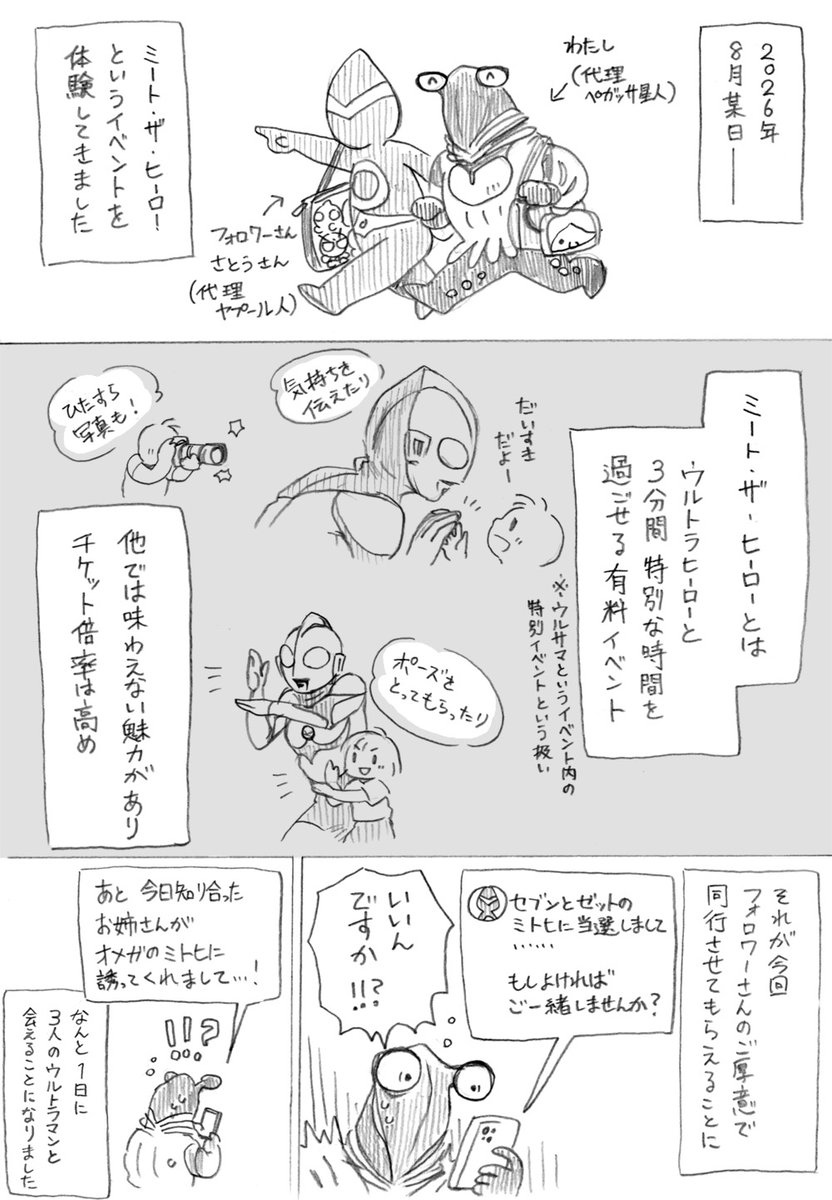 2026年
8月某日――
わたし
(代理
ペガッサ星人)
フォロワーさん
さとうさん
(代理
ヤプール人)
ミート・ザ・ヒーロー
というイベントを
体験してきました
ミート・ザ・ヒーローとは
ウルトラヒーローと
3分間 特別な時間を
過ごせる有料イベント
※ウルサマというイベント内の
特別イベントという扱い
だいすき
だよー
気持ちを
伝えたり
ひたすら
写真も!
ポーズを
とってもらったり
他では味わえない魅力があり
チケット倍率は高め
それが今回
フォロワーさんのご厚意で
同行させてもらえることに
セブンとゼットの
ミトヒに当選しまして
……
もしよければ
ご一緒しませんか?
いいん
ですか!!?
あと 今日知り合った
お姉さんが
オメガのミトヒに
誘ってくれまして…!
!!?
なんと1日に
3人のウルトラマンと
会えることになりました